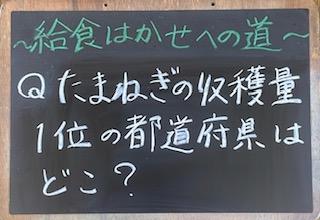 ～給食はかせへの道～
Qたまねぎの収穫量
1位の都道府県は
どこ？